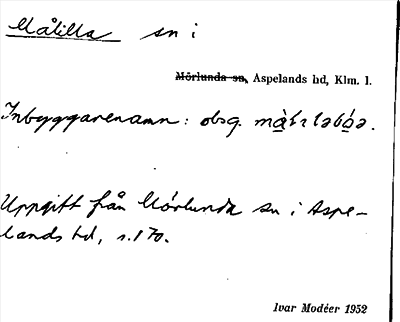 Målilla sn i
Mörlunda sn, Aspelands hd, Klm. l.
Inbyggarenamn: obsg.
Uppgift från Mörlunda sn i Aspe-
lands hd, s. 170.
Ivar Modéer 1952